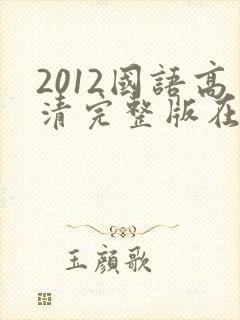 2012國語高
清完整版在
玉顏歌